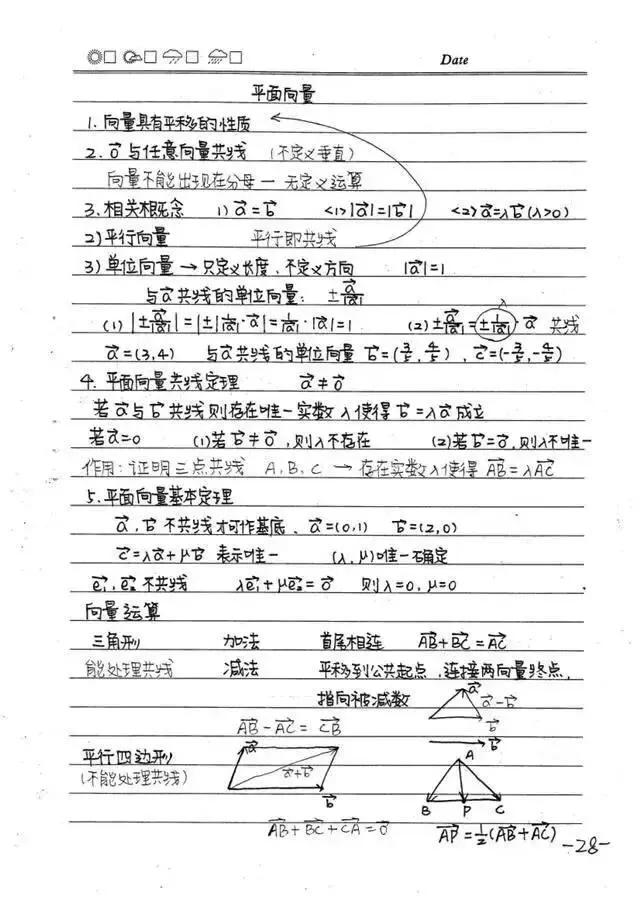 Date
平面向量
1. 向量具有平移的性质
2. 0⃗ 与任意向量共线 (不定义垂直)
向量不能出现在分母 — 无定义运算
3. 相关概念 1) a⃗=b⃗ <1>|a⃗|=|b⃗| <2> a⃗=λb⃗(λ>0)
2) 平行向量 平行即共线
3) 单位向量 → 只定义长度、不定义方向 |a⃗|=1
与a⃗共线的单位向量: ±a⃗/|a⃗|
λ
(1) |±a⃗/|a⃗||=|±1/|a⃗|·a⃗|=1/|a⃗|·|a⃗|=1 (2) ±a⃗/|a⃗|=±1/|a⃗|·a⃗ 共线
a⃗=(3,4) 与a⃗共线的单位向量 b⃗=(3/5,4/5), c⃗=(-3/5,-4/5)
4. 平面向量共线定理 a⃗≠0⃗
若a⃗与b⃗共线则存在唯一实数λ使得b⃗=λa⃗成立
若a⃗=0 (1)若b⃗≠0⃗,则λ不存在 (2)若b⃗=0⃗,则λ不唯一
作用: 证明三点共线 A, B, C → 存在实数λ使得 AB⃗=λAC⃗
5. 平面向量基本定理
a⃗, b⃗ 不共线才可作基底、a⃗=(0,1) b⃗=(2,0)
c⃗=λa⃗+μb⃗ 表示唯一 (λ,μ)唯一确定
e₁⃗, e₂⃗ 不共线 λe₁⃗+μe₂⃗=0⃗ 则λ=0, μ=0
向量运算
三角形 加法 首尾相连 AB⃗+BC⃗=AC⃗
能处理共线 减法 平移到公共起点,连接两向量终点,
指向被减数 a⃗ a⃗-b⃗ b⃗
AB⃗-AC⃗=CB⃗
平行四边形 a⃗ a⃗+b⃗ b⃗ b⃗
(不能处理共线) A B P C
AB⃗+BC⃗+CA⃗=0⃗ AP⃗=½(AB⃗+AC⃗)
-28-